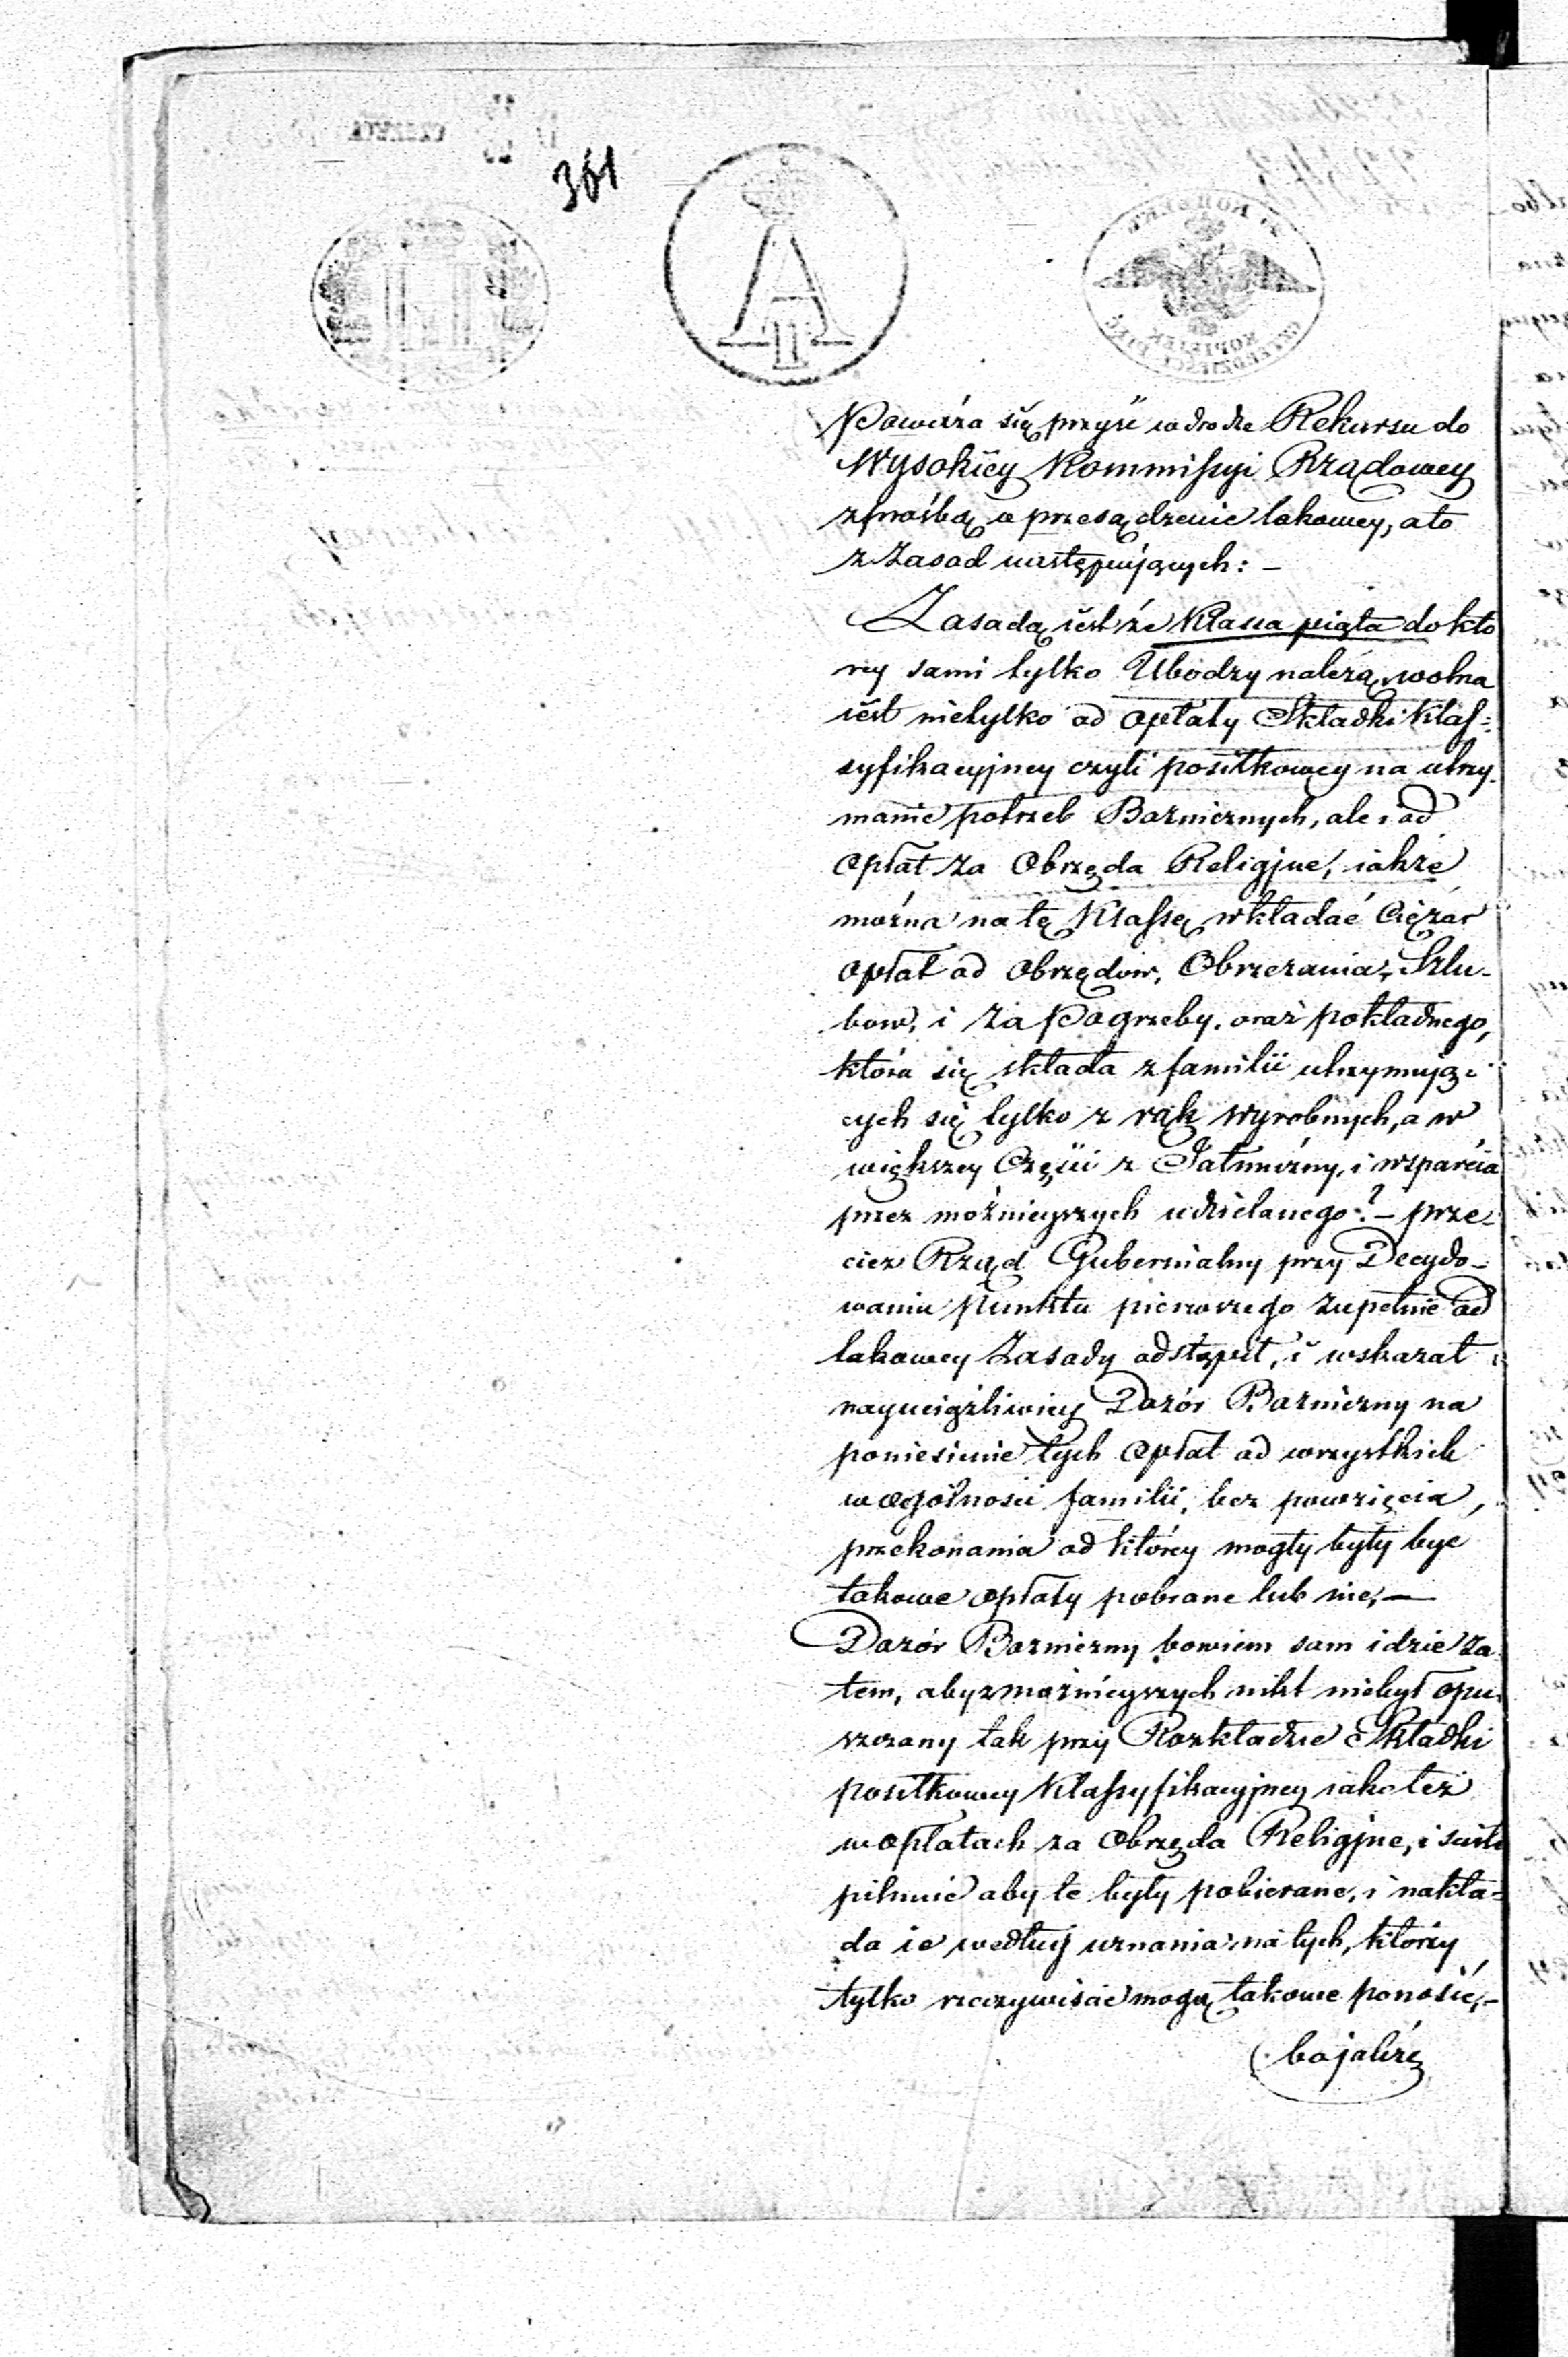 361
A II
Poważa się przyiść w drodze Rekursu do
Wysokiey Kommissyi Rządowey
z prośbą o przesądzenie takowey, a to
z Zasad następuiących: –
Zasadą iest że Klassa piąta do kto
rey sami tylko Ubodzy należą, wolna
iest nietylko od opłaty Składki Klas=
syfikacyjney czyli posiłkowey na utrzy-
manie potrzeb Bożniczych, ale i od
opłat za Obrzęda Religijne, iakże
można na tę Klassę wkładać Ciężar
opłat od Obrzędów, Obrzezania, Szlu-
bow, i za Pogrzeby, oraz pokładnego,
która się składa z familii utrzymują:
cych się tylko z rąk wyrobnych, a w
większey Części z Jałmużny, i wsparcia
przez możnieyszych udzielanego? – prze-
ciez Rząd Gubernialny przy Decydo-
waniu Punktu pierwszego zupełnie od
takowey Zasady odstąpił, i wskazał
nayuciążliwiey Dozór Bożniczny na
poniesienie tych Opłat od wszystkich
w ogólności familii, bez powzięcia
przekonania od którey mogły były być
takowe opłaty pobrane lub nie, –
Dozór Bożniczny bowiem sam idzie za
tem, aby z możnieyszych nikt niebył opu-
szczany tak przy Rozkładzie Składki
posiłkowey Klassyfikacyjney iako też
w opłatach za Obrzęda Religijne, i
pilnuie aby te były pobierane, i nakła=
da ie według uznania na tych, którzy
tylko rzeczywiście mogą takowe ponosić, –
bo jakże